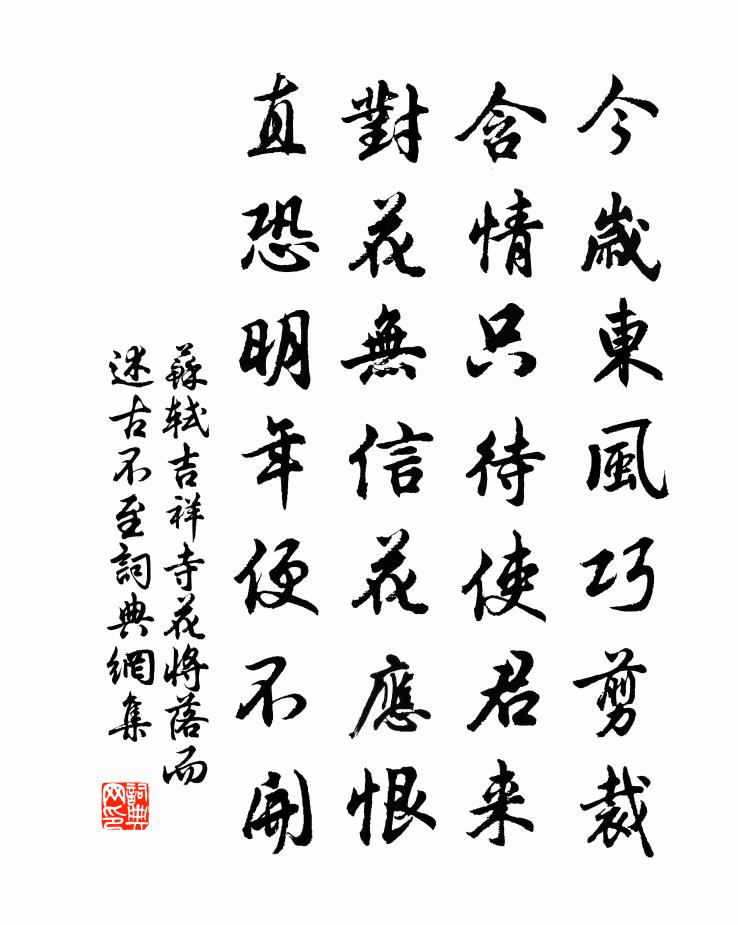 今歲東風巧剪裁
含情只待使君来
對花無信花應恨
直恐明年便不開
蘇軾吉祥寺花將落而
述古不至詞典網集
詞典网印